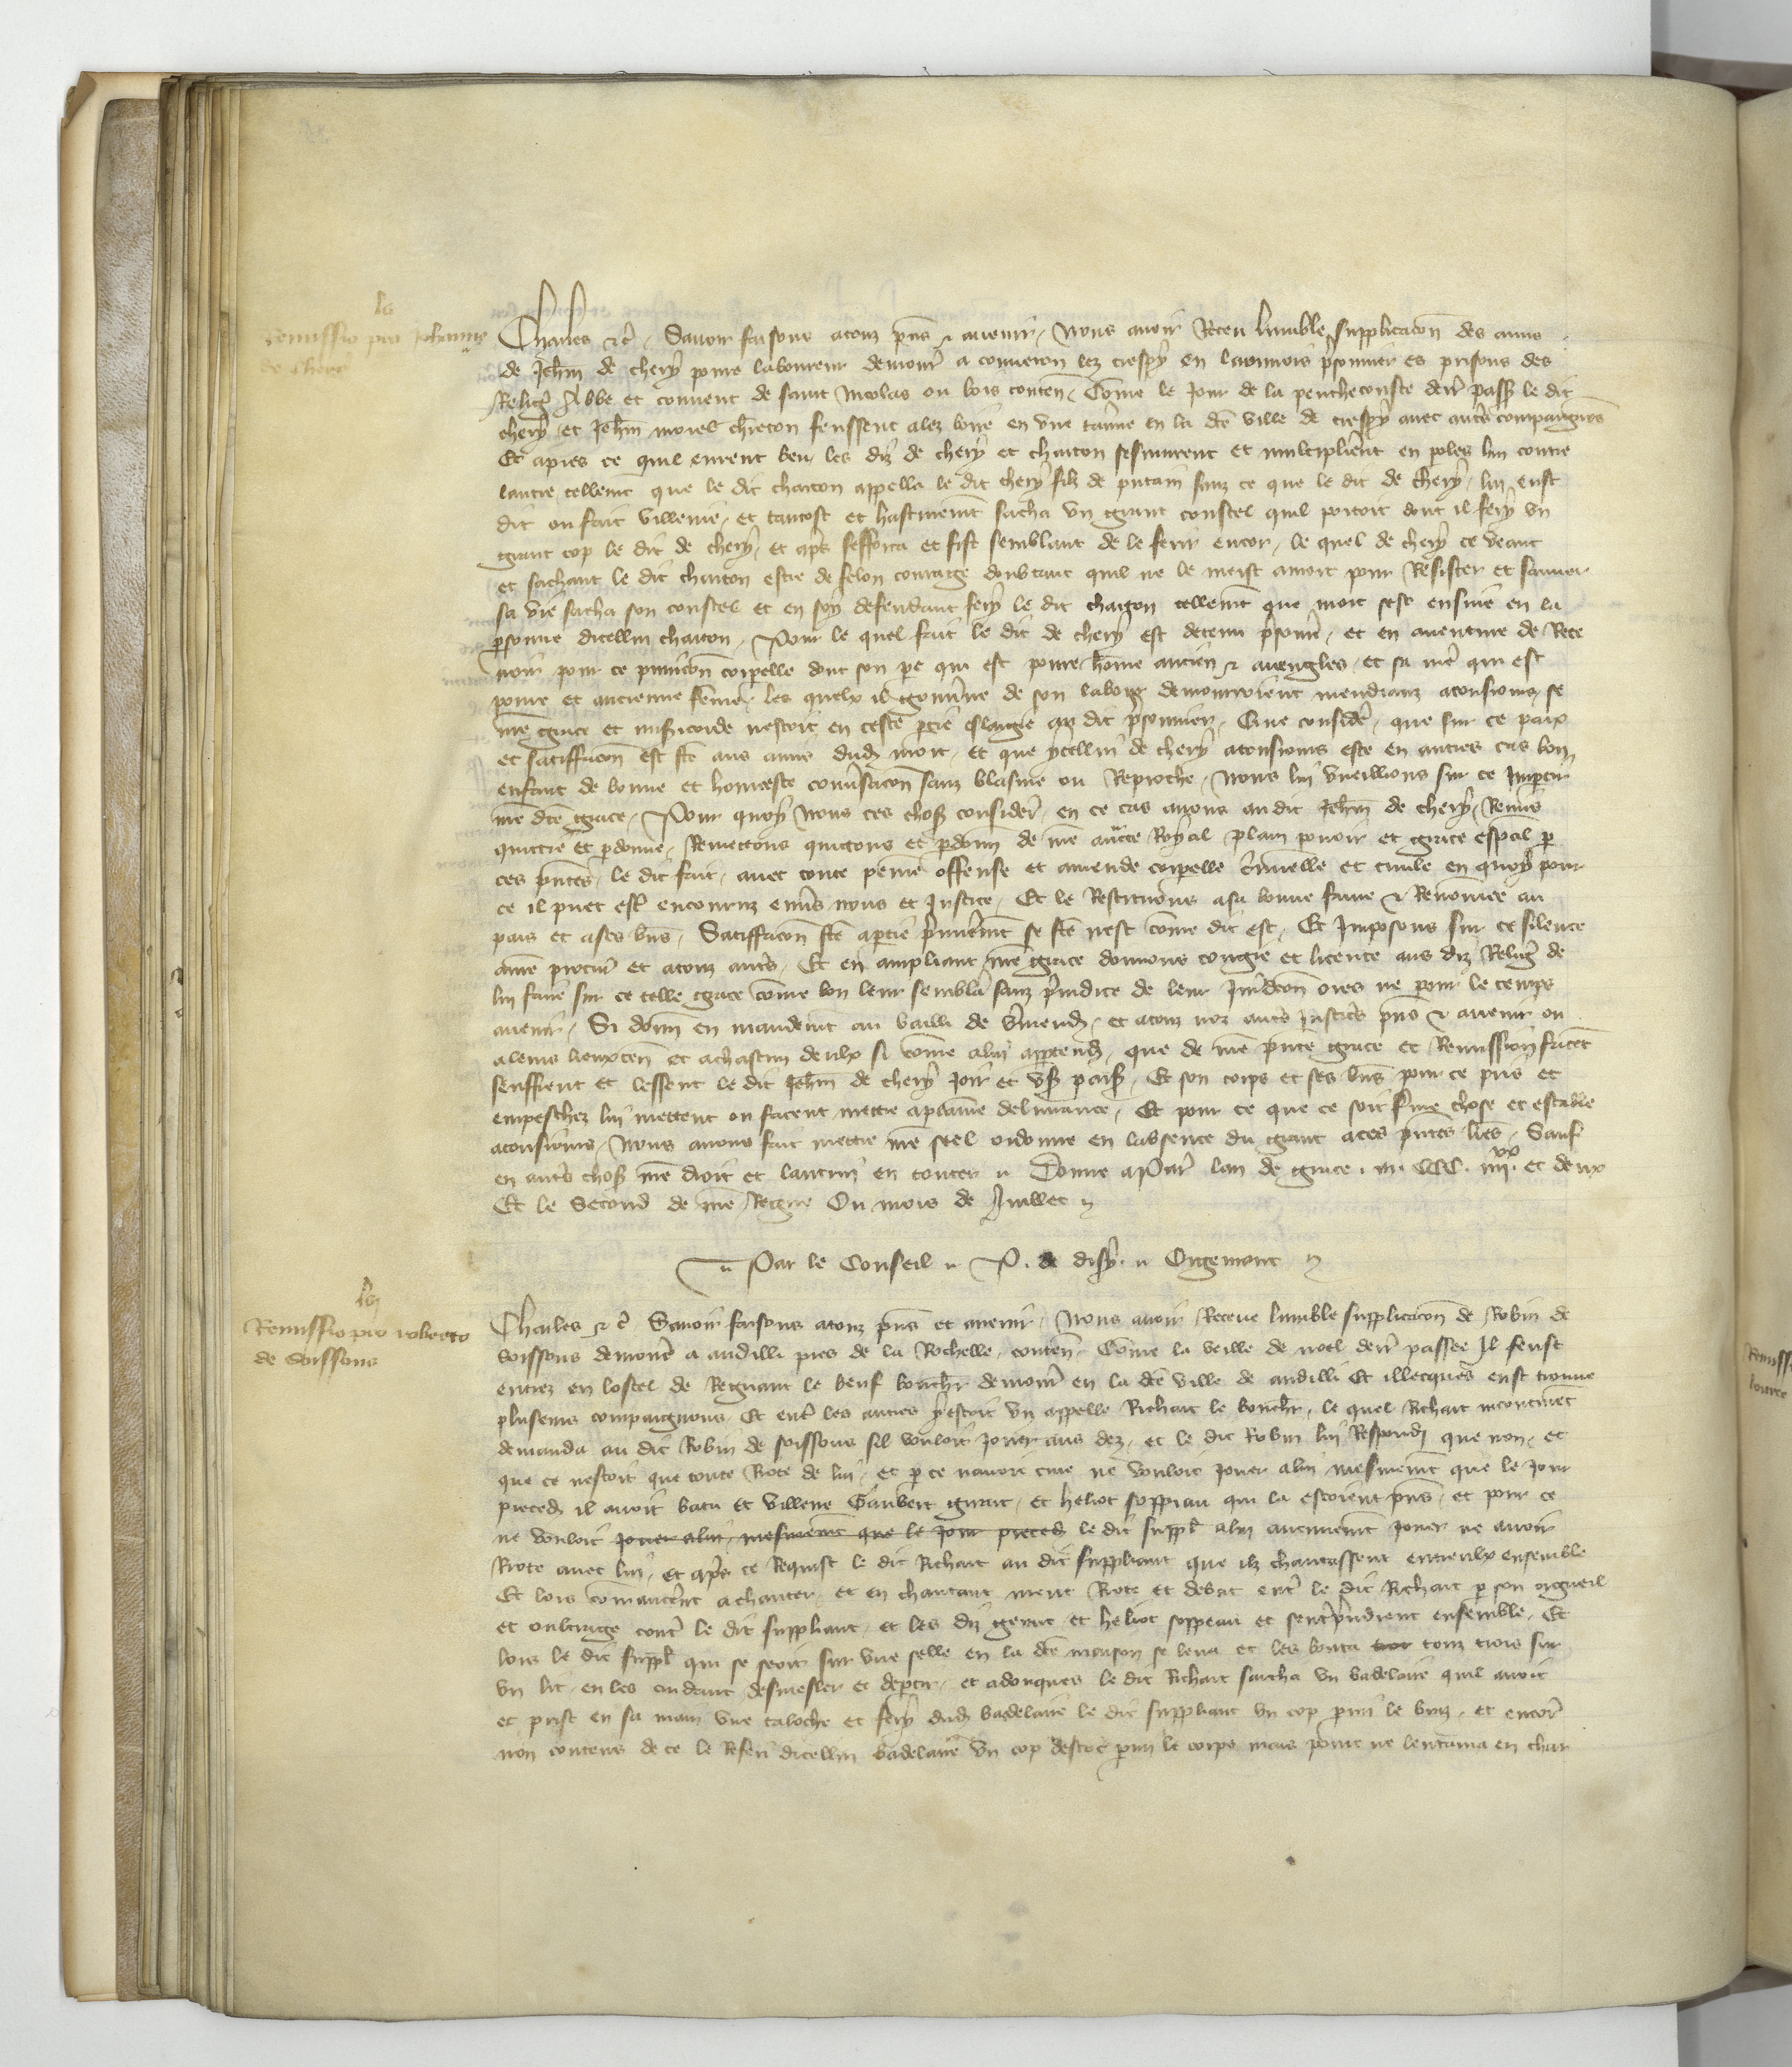 la
Remissio pro Johanne
de Chere
Charles &c̃. Sauoir faisons atouz p̃ns & auenir, Nous auoir Receu lumble supplicacõn des amis
de Jehñ de chery poure laboureur demour̃ a couueron lez crespy en laonnois p̃sonnier es prisons des
Religx̃ Abbe et conuent de saint Nicolas ou bois conteñ. Cõme le Jour de la penthecouste deñr pass̃ le dit
chery et Jehñ morel ch̃reton feussent alez boire en vne tãuñe en la dc̃e ville de crespy auec autr̃s compaignõs
Et apres ce quil eurent beu, les diz de chery et charton sesmurent et multiplier̃nt en p̃oles lun contre
lautre tellem̃t que le dit charton appella le dit chery filz de putain sanz ce que le dit de chery lui eust
dit ou fait villenie, et tantost et hastiuem̃nt sacha vn grant coustel quil portoit dont il fery vn
grant cop le dit de chery, et ap̃s sefforca et fist semblant de le ferir encor, le quel de chery ce veant
et sachant le dit charton estre de felon courage doubtant quil ne le meist amort pour Resister et sauuer
sa vie sacha son coustel et en soy defendant fery le dit charton tellem̃t que mort sest ensuie en la
p̃sonne dicellui charton. Pour le quel fait le dit de chery est detenu p̃sonñ, et en auenture de Rece
uoir pour ce punicõn corp̃elle dont son pe qui est poure hõme ancien & aueugles et sa mer̃ qui est
poure et ancienne fẽme les quelx il gouũne de son labour demourroient mendianz atousiours, se
nr̃e grace et miser̃icorde nestoit en ceste ptie eslargie au dit p̃sonnier. Que consider̃, que sur ce paix
et satiffacõn est fc̃e aus amis dud̃ mort, et que ycellui de chery atousiours este en autres cas bon
enfant de bonne et honneste conũsacõn sanz blasme ou Reproche, Nous lui vueillions sur ce Imp̃tir
nr̃e dc̃e grace, Pour quoy Nous ces chos̃ consider̃, en ce cas auons au dit Jehñ de chery, Remis
quittie et p̃donne, Remettons quittons et p̃donñ de nr̃e auct̃e Royal plain pouoir et grace esp̃al p
ces p̃ntes, le dit fait, auec toute peine offense et amende corp̃elle c̃iminelle et ciuile en quoy pour
ce il puet estr̃ encouruz enũs nous et Justice, Et le Restituons asa bonne fame & Renom̃ee au
pais et ases bñs, Satiffacõn fc̃e aptie p̃mier̃em̃t se fc̃e nest cõme dit est, Et Imposons sur ce silence
anr̃e procur̃ et atouz autr̃s, Et en ampliant nr̃e grace donnons congie et licence aus diz Religx̃ de
lui faire sur ce telle grace cõme bon leur semblera sanz p̃iudice de leur Jur̃idcõn ores ne pour le temps
auenir. Si donñ en mandem̃t au bailli de ũmend̃, et atouz noz autr̃s Justic̃s p̃ns & auenir ou
aleurs lieuxteñ et achascun deulx si cõme alui app̃tend̃, que de nr̃e p̃nte grace et Remission facẽt
seuffrent et lessent le dit Jehñ de chery Joir et vs̃ paisß, Et son corps et ses bñs pour ce pris et
empeschez lui mettent ou facent mettre aplaine deliurance, Et pour ce que ce soit ferme chose et estable
atousiours, Nous auons fait mettre nr̃e seel ordonne en labsence du grant aces p̃ntes lr̃es, Sauf
en autr̃s chos̃ nr̃e droit et lautrui en toutes. Donne aPar̃ lan de grace. m. CCC. iiijxx. et deux
Et le Second de nr̃e Regne Ou mois de Juillet
Par le Conseil. P. de disy. Orgemont
lej
Remissio pro roberto
de Soissons
Charles & c̃ Sauoir faisons atouz p̃ns et auenir, Nous auoir Receue lumble supplicacõn de Robin de
soissons demour̃ a andilli pres de la Rochelle, conteñ. Cõme la veille de noel deñr passee Il feust
entrez en lostel de Regnaut le beuf bouch̃r demour̃ en la dc̃e ville de andilli Et illecques eust trouue
plusieurs compaignons Et entr̃ les autres y estoit vn appelle Richart le bouch̃r, le quel Richart incontinẽt
demanda au dit Robin de soissons sil vouloit Jouer aus dez, et le dit Robin lui Respond̃ que non, et
que ce nestoit que toute Riote de lui, et p ce nauoit cure ne vouloit Jouer alui mesmem̃t que le Jour
preced̃ il auoit batu et villene Gaubert giraut, et heliot soppeau qui la estoient p̃ns, et pour ce
ne vouloit Jouer alui, mesmem̃t que le Jour preced̃ le dit suppl̃ alui aucunem̃t Jouer ne auoir
Riote auec lui, et ap̃s ce Requist le dit Richart au dit suppliant que ilz chantassent entreulx ensemble
Et lors cõmancer̃nt achanter, et en chantant meut Riote et debat entr̃ le dit Richart p son orgueil
et oultrage contr̃ le dit suppliant, et les diz geraut et heliot soppeau et sentr̃prindrent ensemble, Et
lors le dit suppl̃ qui se seoit sur vne selle en la dc̃e maison se leua et les bouta tor touz trois sur
vn lit, en les cuidant desmesler et dep̃tir, et adonques le dit Richart saicha vn badelaire quil auoit
et prist en sa main vne taloche et fery dud̃ badelaire le dit suppliant vn cop p̃mi le bras, et encor̃
non contens de ce le Refer̃i dicellui badelaire vn cop destoc p̃mi le corps mais point ne lentama en char